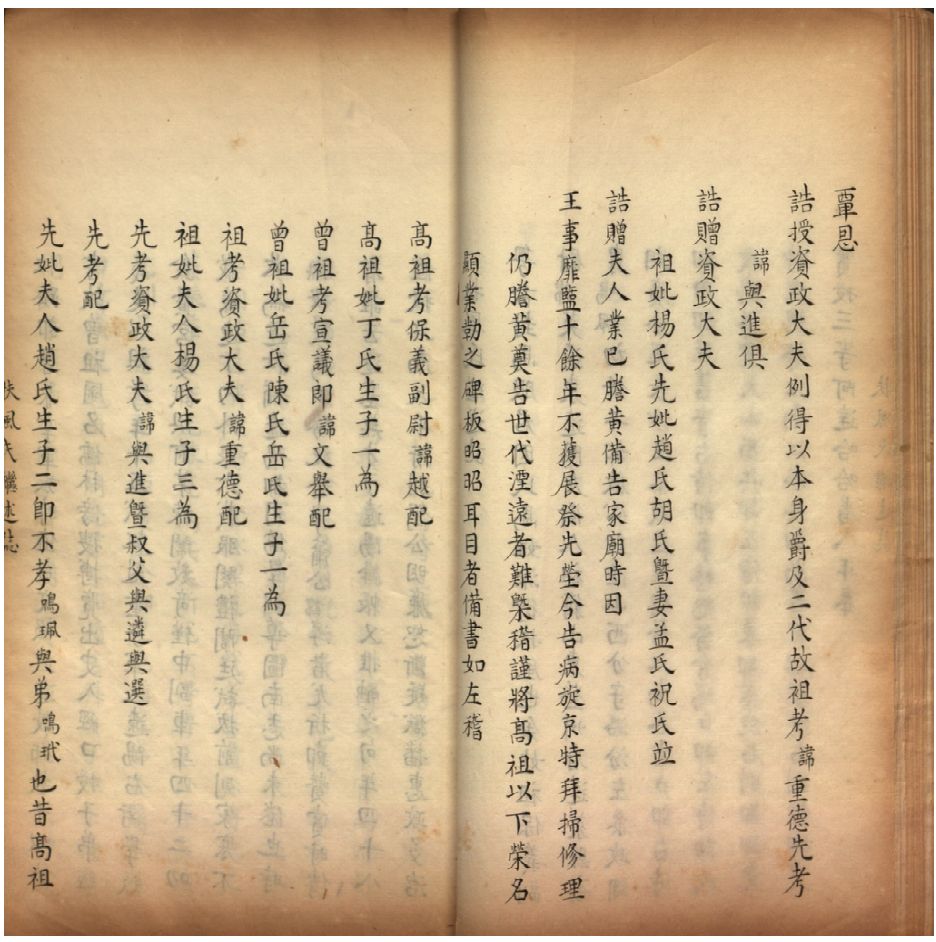 覃恩
誥授資政大夫例得以本身爵及二代故祖考諱重德先考
諱與進俱
誥贈資政大夫
祖妣楊氏先妣趙氏胡氏曁妻孟氏祝氏竝
誥贈夫人業已謄黃備告家廟時因
王事靡盬十餘年不獲展祭先塋今告病旋京特拜掃修理
仍謄黃奠告世代湮遠者難槩稽謹將高祖以下榮名
顯業勒之碑板昭昭耳目者備書如左稽
高祖考保義副尉諱越配
高祖妣丁氏生子一為
曾祖考宣議郎諱文舉配
曾祖妣岳氏陳氏岳氏生子一為
祖考資政大夫諱重德配
祖妣夫人楊氏生子三為
先考資政大夫諱與進曁叔父與遴與選
先考配
先妣夫人趙氏生子二卽不孝鳴珮與弟鳴玳也昔高祖
氏繼述誌